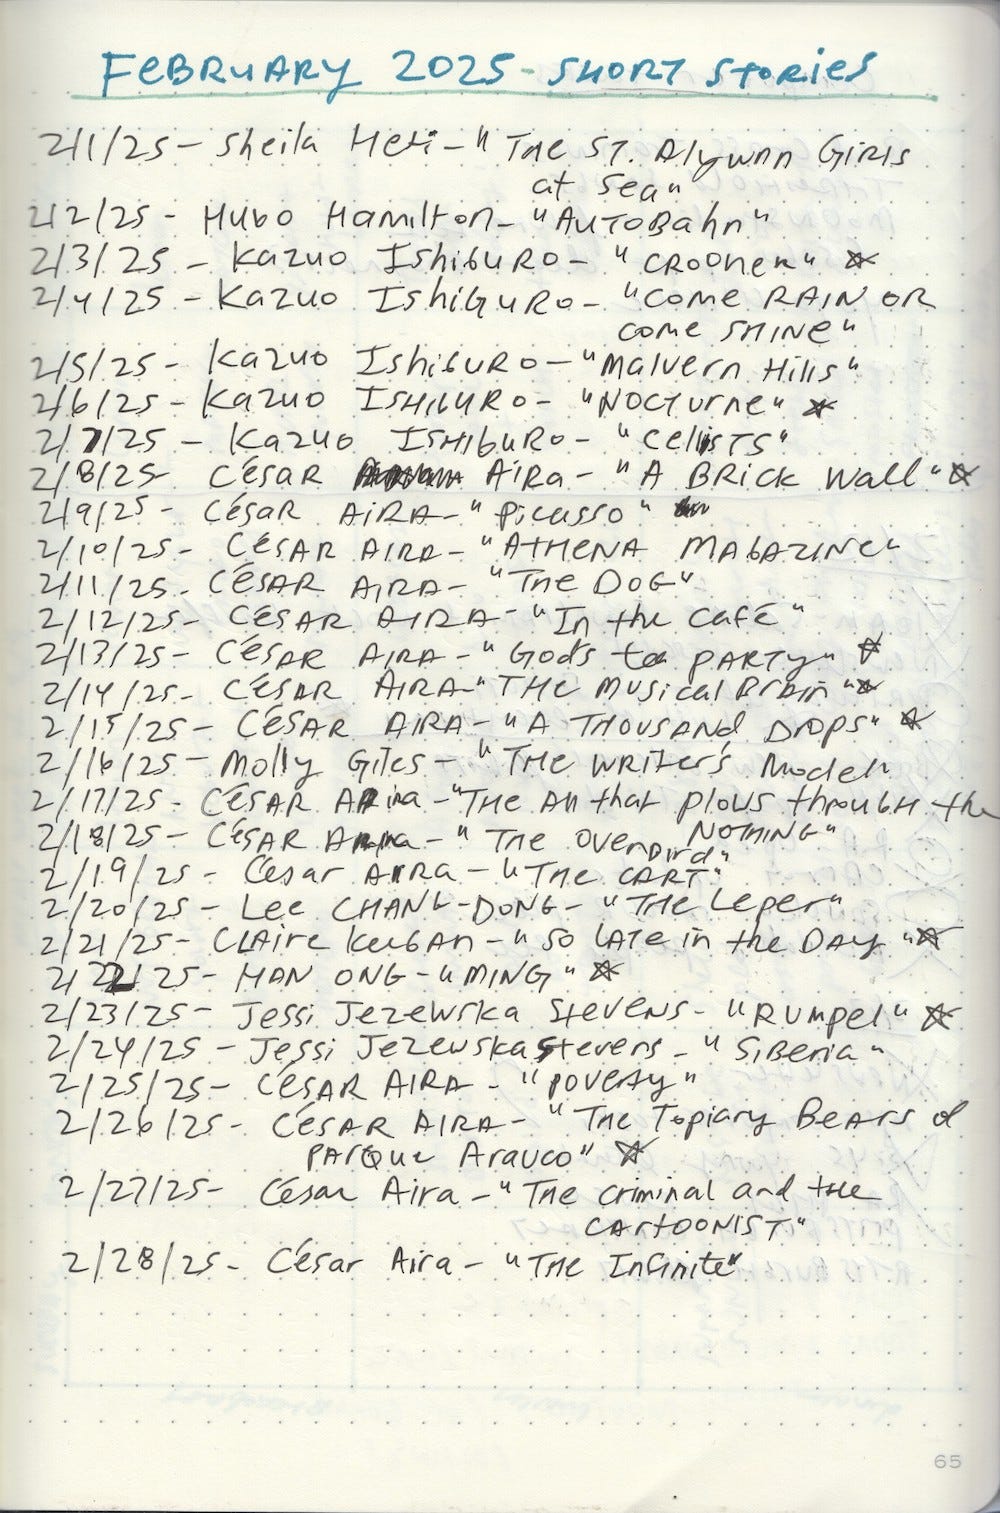 FEBRUARY 2025 - SHORT STORIES
2/1/25 - Sheila Heti - "The St. Alywnn Girls
at Sea"
2/2/25 - Hugo Hamilton - "Autobahn"
2/3/25 - Kazuo Ishiguro - "Crooner" ☆
2/4/25 - Kazuo Ishiguro - "Come Rain or
Come Shine"
2/5/25 - Kazuo Ishiguro - "Malvern Hills"
2/6/25 - Kazuo Ishiguro - "Nocturne" ☆
2/7/25 - Kazuo Ishiguro - "Cellists"
2/8/25 - César Aira - "A Brick Wall" ☆
2/9/25 - César Aira - "Picasso"
2/10/25 - César Aira - "Athena Magazine"
2/11/25 - César Aira - "The Dog"
2/12/25 - César Aira - "In the Café"
2/13/25 - César Aira - "God's Tea Party" ☆
2/14/25 - César Aira - "The Musical Brain" ☆
2/15/25 - César Aira - "A Thousand Drops" ☆
2/16/25 - Molly Giles - "The Writer's Model"
2/17/25 - César Aira - "The All that Plows through the
Nothing"
2/18/25 - César Aira - "The Ovenbird"
2/19/25 - César Aira - "The Cart"
2/20/25 - Lee Chang-Dong - "The Leper"
2/21/25 - Claire Keegan - "So Late in the Day" ☆
2/22/25 - Han Ong - "Ming" ☆
2/23/25 - Jessi Jezewska Stevens - "Rumpel" ☆
2/24/25 - Jessi Jezewska Stevens - "Siberia"
2/25/25 - César Aira - "Poverty"
2/26/25 - César Aira - "The Topiary Bears of
Parque Arauco" ☆
2/27/25 - César Aira - "The Criminal and the
Cartoonist"
2/28/25 - César Aira - "The Infinite"
65